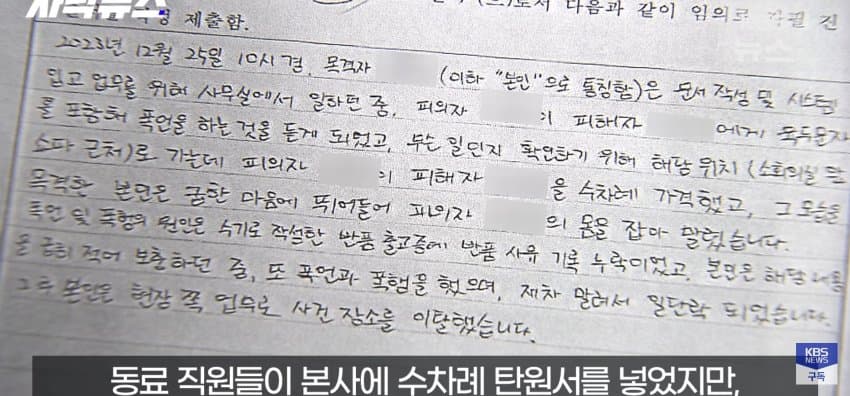 제출함.
(으)로서 다음과 같이 임의로 진
뉴스
2023년 12월 25일 10시경, 목격자 (이하 "본인"으로 통칭함)은 문서 작성 및 시스템
입고 업무를 위해 사무실에서 일하던 중, 피의자 피해자 에게 육두문자
를 포함해 폭언을 하는 것을 듣게 되었고, 무슨 일인지 확인하기 위해 해당 위치 (소회의실
소파 근처)로 가는데 피의자 피해자 을 수차례 가격했고, 그 모습을
목격한 본인은 급한 마음에 뛰어들어 피의자 의 몸을 잡아 말렸습니다.
폭언 및 폭행의 원인은 수기로 작성한 반품 출고증에 반품 사유 기록 누락이었고, 본인은 해당 내용
을 급히 적어 보충하던 중, 또 폭언과 폭행을 했으며, 재차 말려서 일단락 되었습니다.
그 후 본인은 현장 쪽 업무로 사건 장소를 이탈했습니다.
동료 직원들이 본사에 수차례 탄원서를 넣었지만,
KBS
NEWS
구독